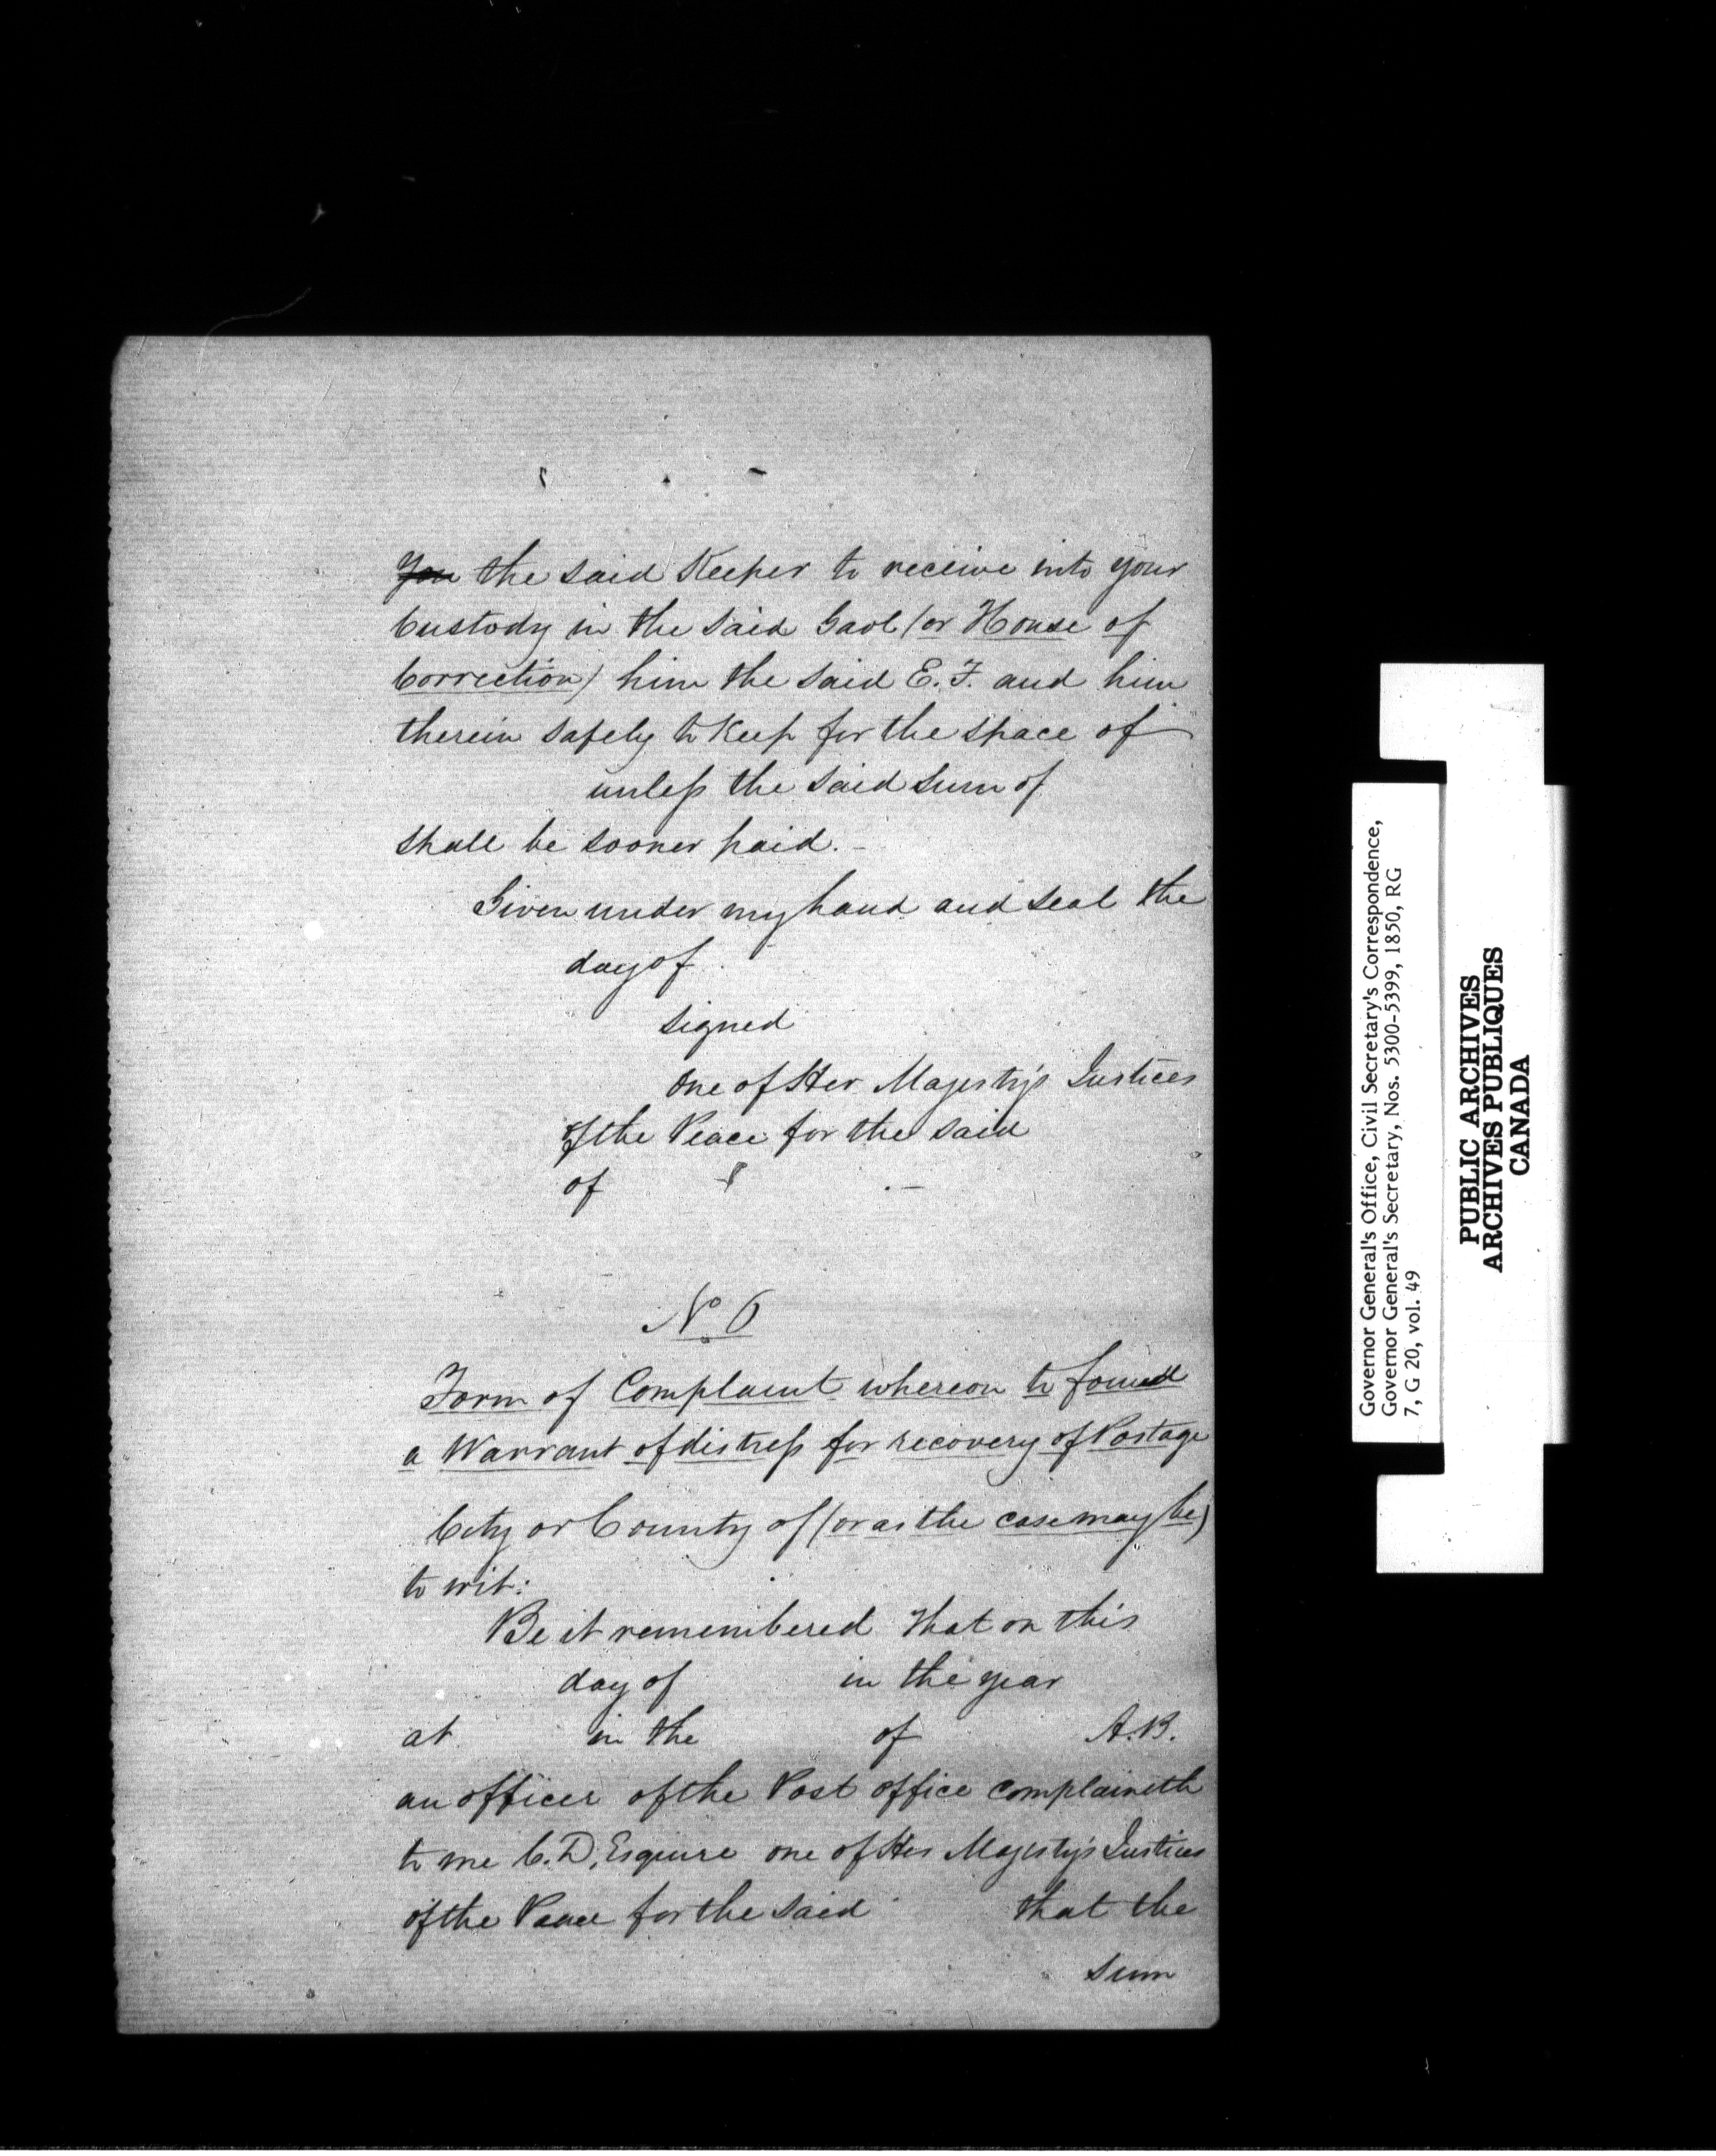 You the said Keeper to receive into your
Custody in the said Gaol (or House of
Correction) him the said E. F. and him
therein safely to keep for the space of
unless the said sum of
shall be sooner paid. -
Given under my hand and seal the
day of
signed
One of Her Majesty's Justices
of the Peace for the said
of
No 6
Form of Complaint whereon to found
a Warrant of distress for recovery of Postage
City or County of (or as the case may be)
to wit:
Be it remembered that on this
day of in the year
at in the of A.B.
an officer of the Post office complaineth
to me C.D. Esquire one of Her Majesty's Justices
of the Peace for the said that the
sum
Governor General's Office, Civil Secretary's Correspondence,
Governor General's Secretary, Nos. 5300-5399, 1850, RG
7, G 20, vol. 49
PUBLIC ARCHIVES
ARCHIVES PUBLIQUES
CANADA